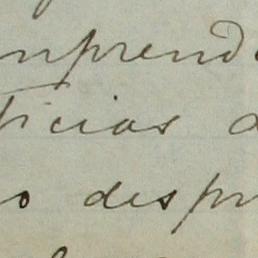 mprend
ticias d
o despr